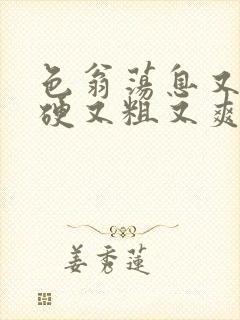 色翁荡息又
硬又粗又爽
姜秀莲